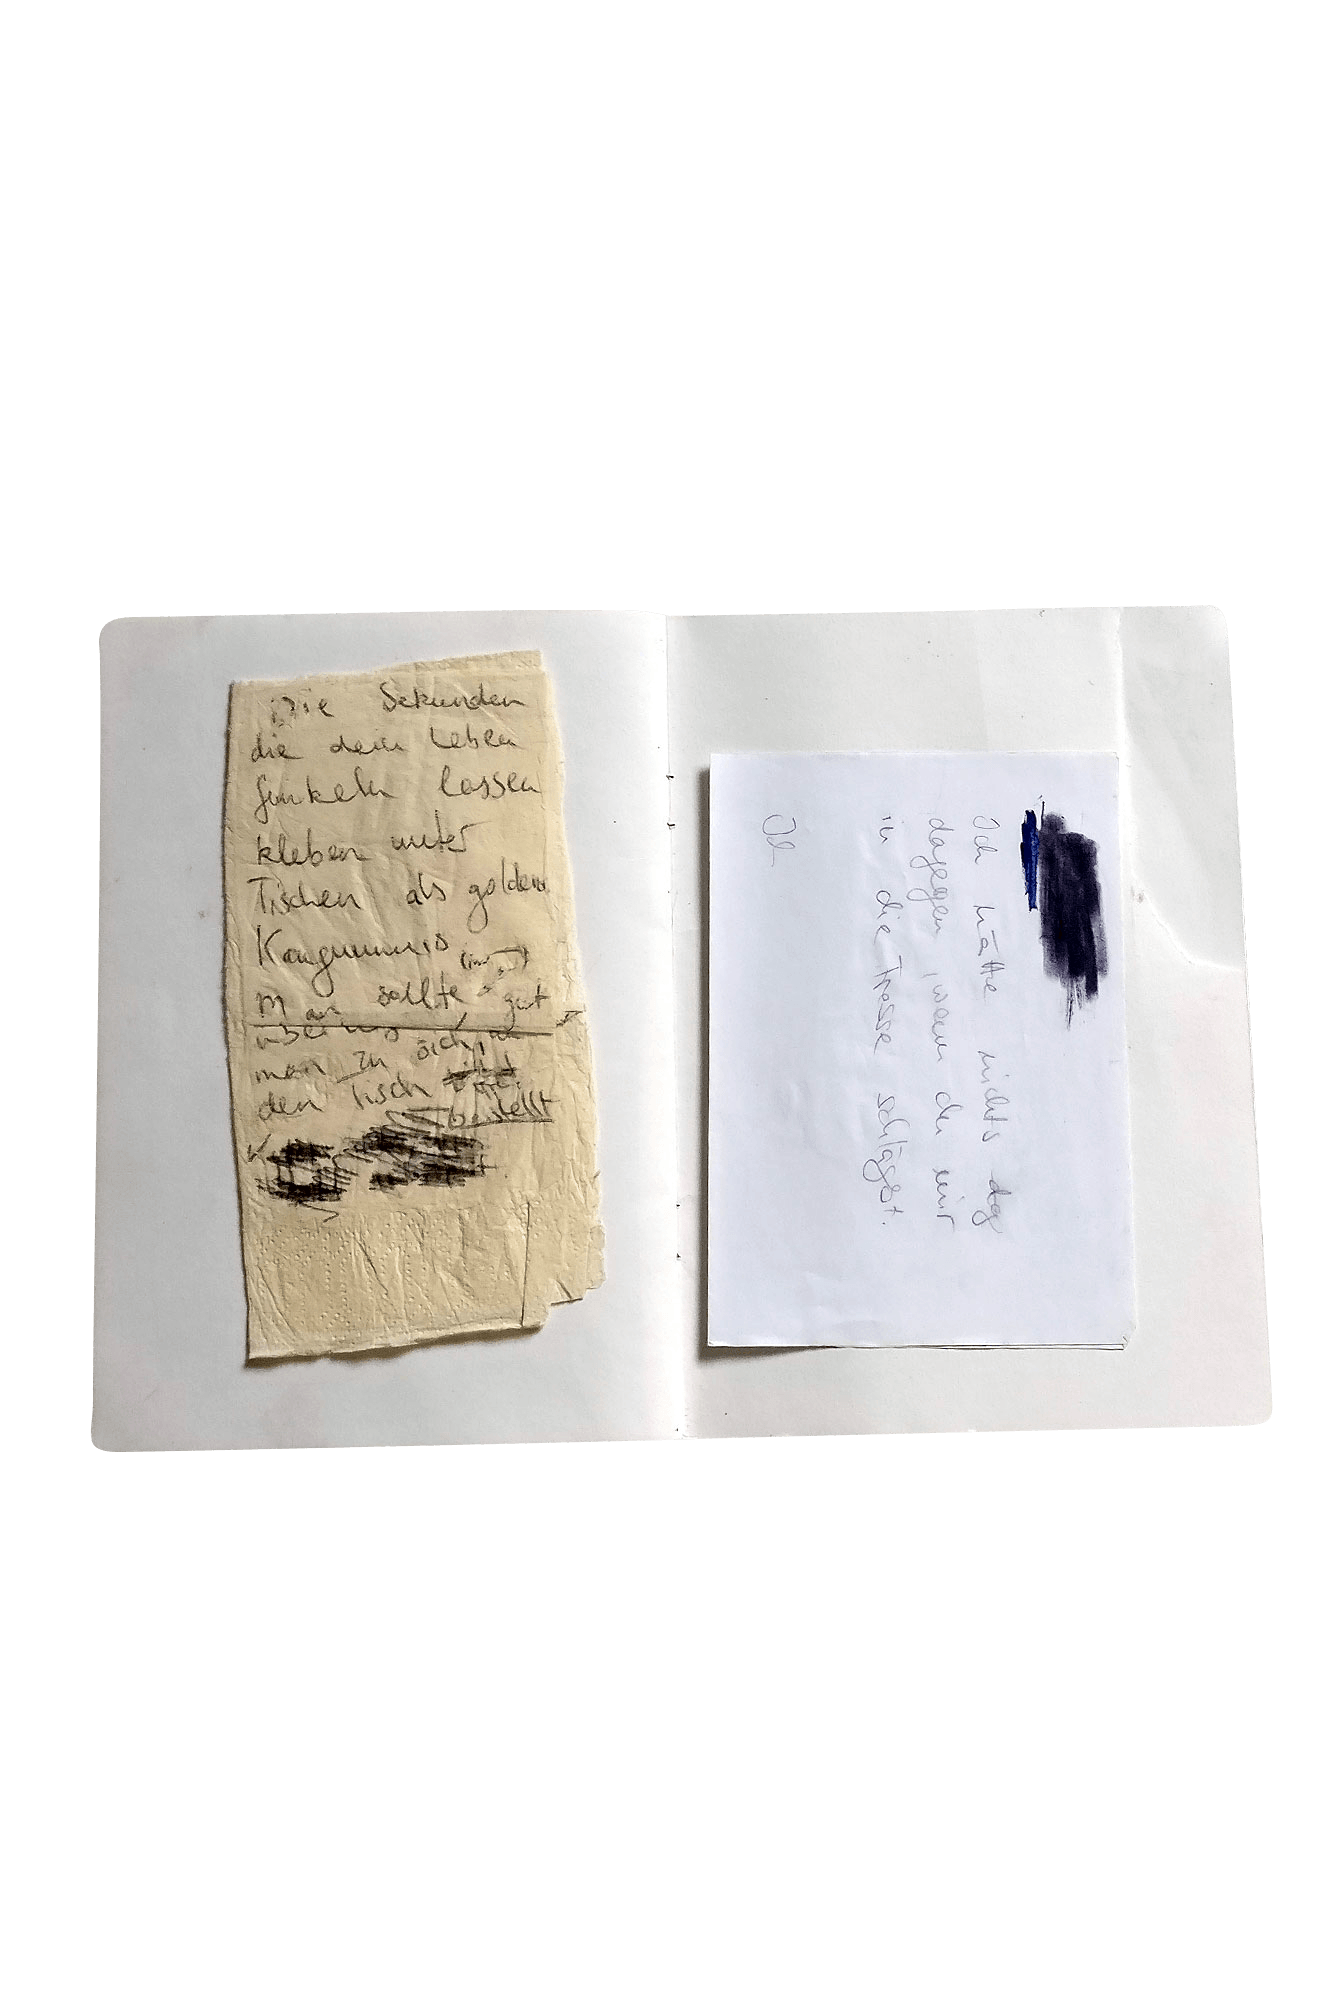 Die Sekunden
die dein Leben
funkeln lassen
kleben unter
Tischen als goldene
Kaugummis
Man sollte gut
men zu sich,
den Tisch
bestellt
Ich hätte nichts dag
dagegen, wenn du mir
in die Fresse schlägst.
Id